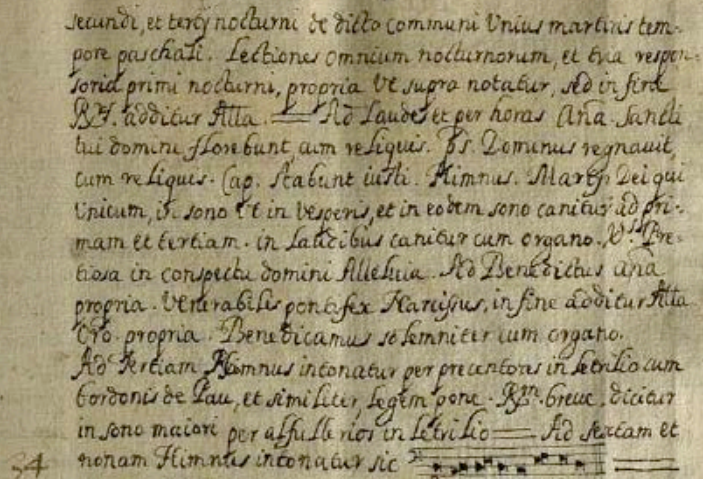 secundi, et tertij nocturni de dicto communi Unius martiris tem-
pore paschali. Lectiones omnium nocturnorum, et tria respon-
soria primi nocturni, propria Ut supra notatur, sed in fine
R.m additur Alla. Ad Laudes et per horas Aña. Sancti
tui domini florebunt, cum reliquis. Ps. Dominus regnavit,
cum reliquis. Cap. Stabunt iusti. Himnus. Martyr Dei qui
Unicum, in sono Ut in Vesperis, et in eodem sono canitur ad pri-
mam et tertiam. in laudibus canitur cum organo. V.s Pre-
tiosa in conspectu domini Alleluia. Ad Benedictus aña
propria. Venerabilis pontifex Narcissus, in fine additur Alla
Oro. propria. Benedicamus solemniter cum organo.
Ad Tertiam Himnus intonatur per precentores in letrilio cum
bordonis de Pau, et similiter, Legem pone. R.m breve, dicitur
in sono maiori per in letrilio Ad sextam et
34 nonam Himnus intonatur sic